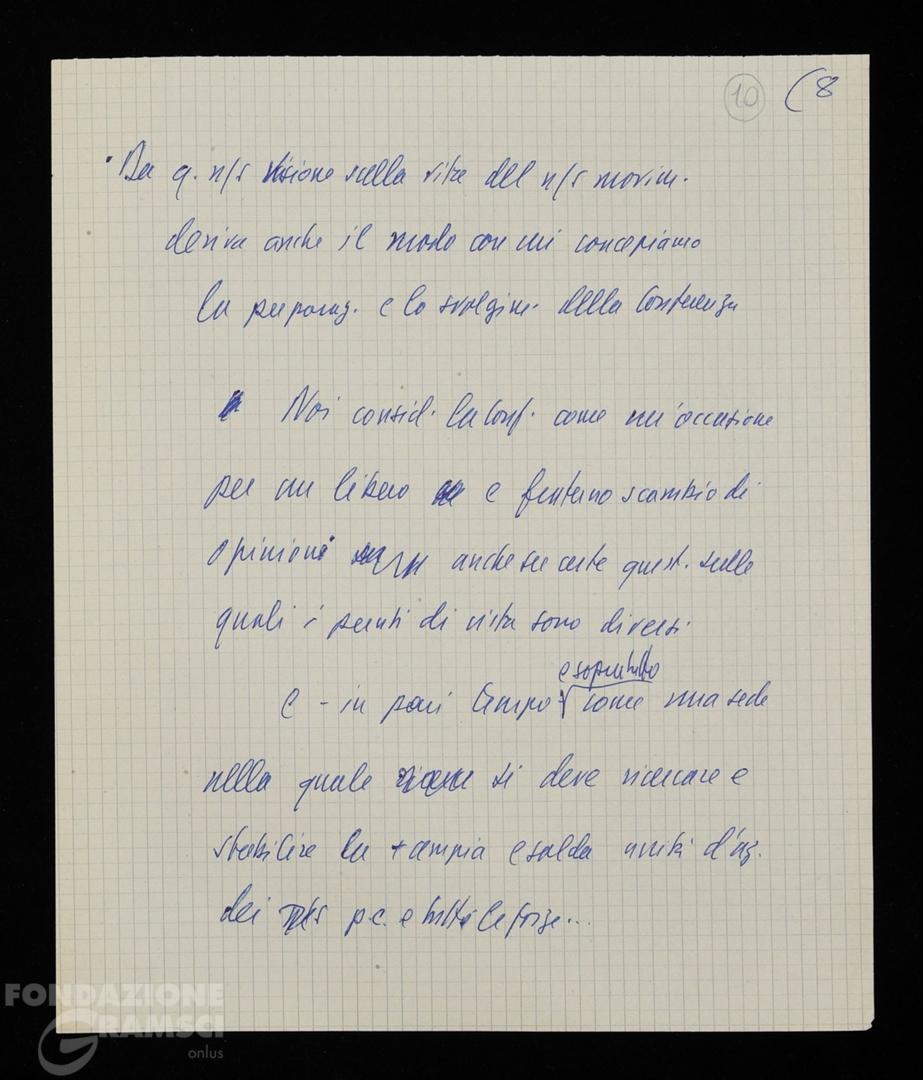 10 (8
· Da q. n/s visione sulla vita del n/s movim.
deriva anche il modo con cui concepiamo
la preparaz. e lo svolgim. della Conferenza
Noi consid. la Conf. come un'occasione
per un libero e fraterno scambio di
opinioni anche su certe quest. sulle
quali i punti di vista sono diversi
e soprattutto
e - in pari tempo - come una sede
nella quale si deve ricercare e
stabilire la + ampia e salda unità d'az.
dei p.c. e tutte le forze...
FONDAZIONE
GRAMSCI
onlus